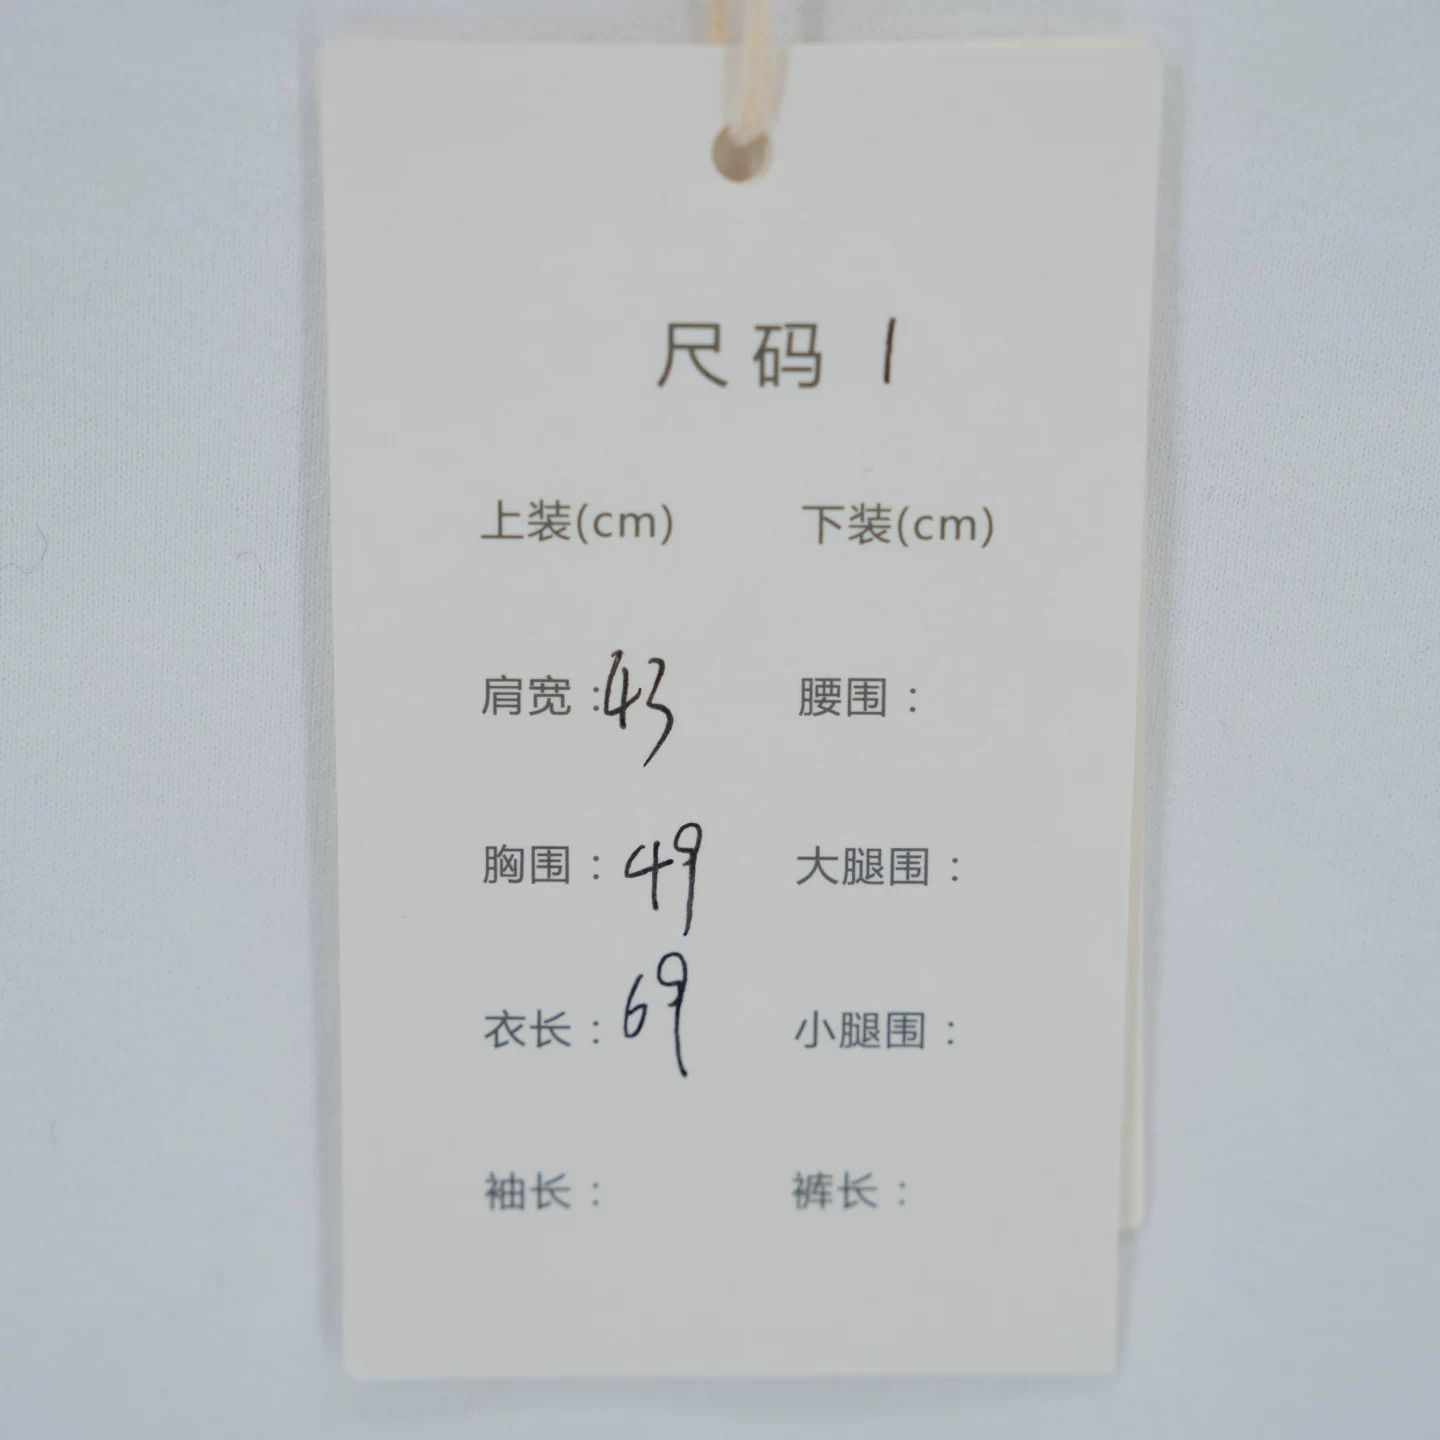 尺码 1
上装(cm) 下装(cm)
肩宽：43 腰围：
胸围：49 大腿围：
衣长：69 小腿围：
袖长： 裤长：